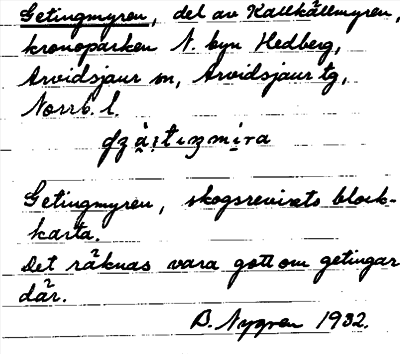 Getingmyren, del av Kallkällmyren,
kronoparken N. byn Hedberg,
Arvidsjaur sn, Arvidsjaur tg,
Norrb. l.
Getingmyren, skogsrevirets block-
karta.
Det räknas vara gott om getingar
där.
B. Nygren 1932.